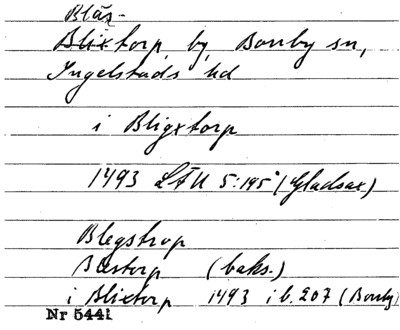 Bläs-
Blixtorp, by, Borrby sn,
Ingelstads hd
i Bligxtorp
1493 LÄU 5:195 (Gladsax)
Blegstrop
Bœstorp (baks.)
i Blixtorp 1493 i b. 207 (Borrby)
Nr 5441